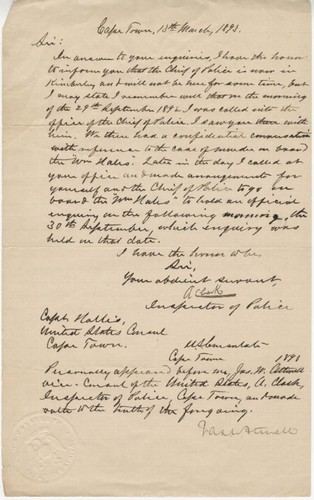 Cape Town, 13th March, 1893.
Sir:
In answer to your enquiries, I have the honor
to inform you that the Chief of Police is now in
Kimberley and will not be here for some time, but
I may state I remember well that on the morning
of the 29th September 1892 I was called into the
office of the Chief of Police. I saw you there with
him. We three had a confidential conversation
with reference to the case of murder on board
the "Wm Hales". Later in the day I called at
your office and made arrangements for
yourself and the Chief of Police to go on
board the "Wm Hales" to hold an official
enquiry on the following morning, the
30th September, which enquiry was
held on that date.
I have the honor to be
Sir,
Your obedient servant,
A Clark
Inspector of Police
Capt Hollis,
United States Consul
Cape Town.
U.S. Consulate
Cape Town 1893
Personally appeared before me, Jas. W.
Vice-Consul of the United States, A. Clark,
Inspector of Police, Cape Town, and made
oath to the truth of the foregoing.